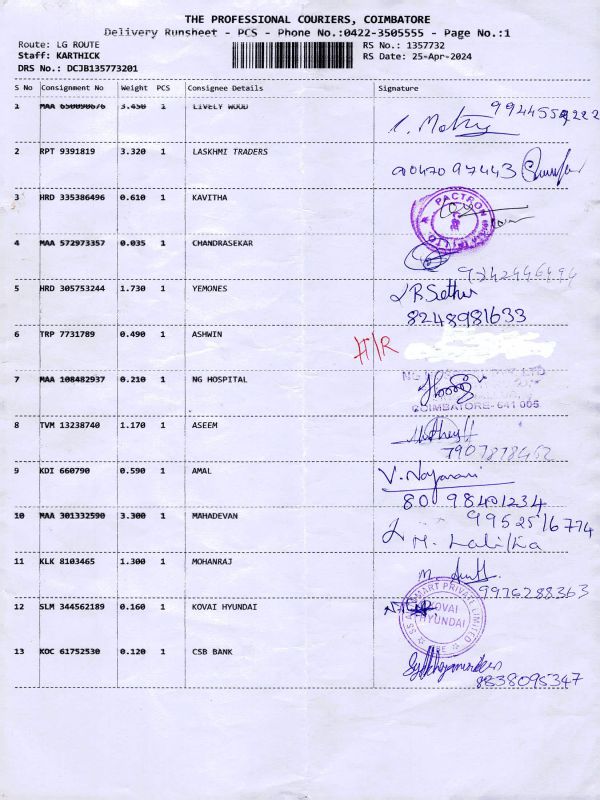 THE PROFESSIONAL COURIERS, COIMBATORE
Delivery Runsheet - PCS - Phone No.:0422-3505555 - Page No.:1
Route: LG ROUTE
RS No.: 1357732
Staff: KARTHICK
RS Date: 25-Apr-2024
DRS No.: DCJB135773201
S No Consignment No Weight PCS Consignee Details Signature
1 MAA 650090676 3.450 1 LIVELY WOOD
2 RPT 9391819 3.320 1 LASKHMI TRADERS
9047097443
3 HRD 335386496 0.610 1 KAVITHA
PACTRON
4 MAA 572973357 0.035 1 CHANDRASEKAR
5 HRD 305753244 1.730 1 YEMONES
8248981633
6 TRP 7731789 0.490 1 ASHWIN
H/R
7 MAA 108482937 0.210 1 NG HOSPITAL
COIMBATORE- 641 005
8 TVM 13238740 1.170 1 ASEEM
9 KDI 660790 0.590 1 AMAL
10 MAA 301332590 3.300 1 MAHADEVAN
9952516774
M. Lalitha
11 KLK 8103465 1.300 1 MOHANRAJ
9976288363
12 SLM 344562189 0.160 1 KOVAI HYUNDAI
KOVAI
HYUNDAI
13 KOC 61752530 0.120 1 CSB BANK
8838095347